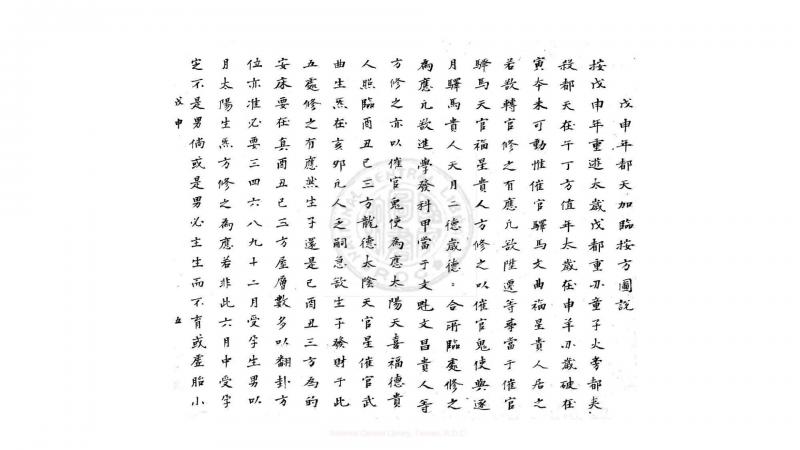 戊申年都天加臨按方圖說
按戊申年重遊太歲戊都重丙童子火旁都夾
殺都天在午丁方值年太歲在申羊刃歲破在
寅本未可動惟催官驛馬文曲福星貴人居之
若欲轉官修之有應凢欲陞遷等事當于催官
驛馬天官福星貴人方修之以催官鬼使與逐
月驛馬貴人天月二德歲德二合所臨處修之
為應凢欲進學發科甲當于文魁文昌貴人等
方修之亦以催官鬼使為應太陽天喜福德貴
人照臨酉丑巳三方龍德太陰天官星催官武
曲生炁在亥卯凢人乏嗣急欲生子發財于此
五處修之有應然生子還是巳酉丑三方為的
安床要在真酉丑巳三方屋層數多以翻卦方
位亦准必要三四六八九十二月受孕生男以
月太陽生炁方修之為應若非此六月中受孕
定不是男倘或是男必主生而不育或虛胎小
戊申
五
NATIONAL CENTRAL LIBRARY
National Central Library, Taiwan, R.O.C